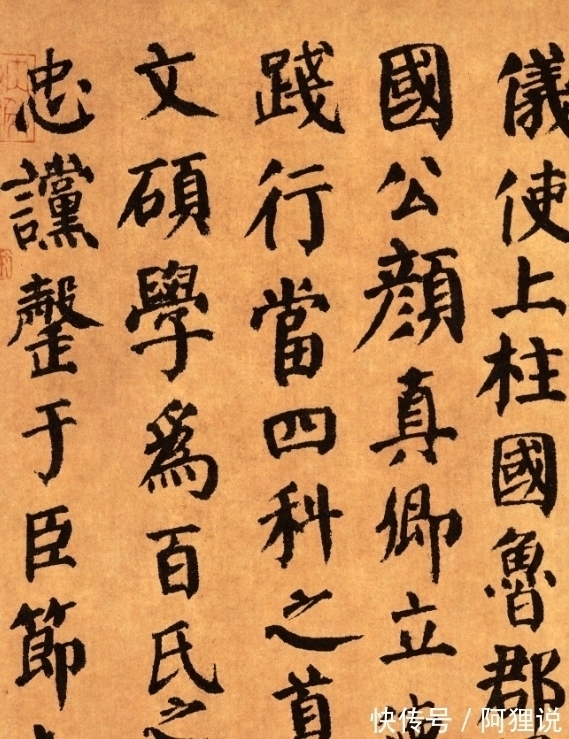 儀使上柱國魯郡
國公顏真卿立
踐行當四科之首
文碩學爲百氏之
忠讜罄于臣節
快传号 / 阿狸说